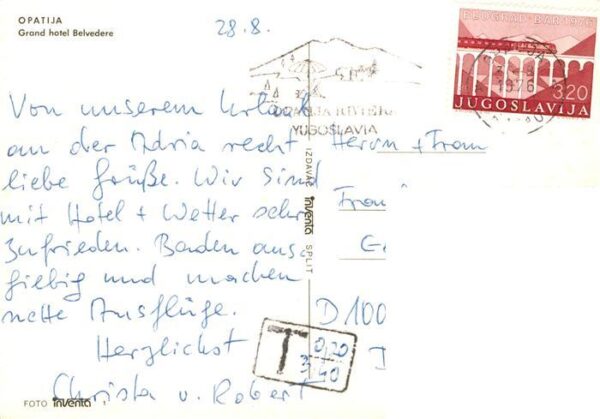 OPATIJA
Grand hotel Belvedere
28.8.
Von unserem Urlaub
an der Adria recht
liebe Grüße. Wir sind
mit Hotel + Wetter sehr
zufrieden. Baden aus-
giebig und machen
nette Ausflüge.
Herzlichst
Christa u. Robert
FOTO inventa
IZDAVAČ inventa SPLIT
RIVIERA
YUGOSLAVIA
BEOGRAD - BAR 1976
1976
3.20
JUGOSLAVIJA
Herrn + Frau
D 100
T 0,20
3,40